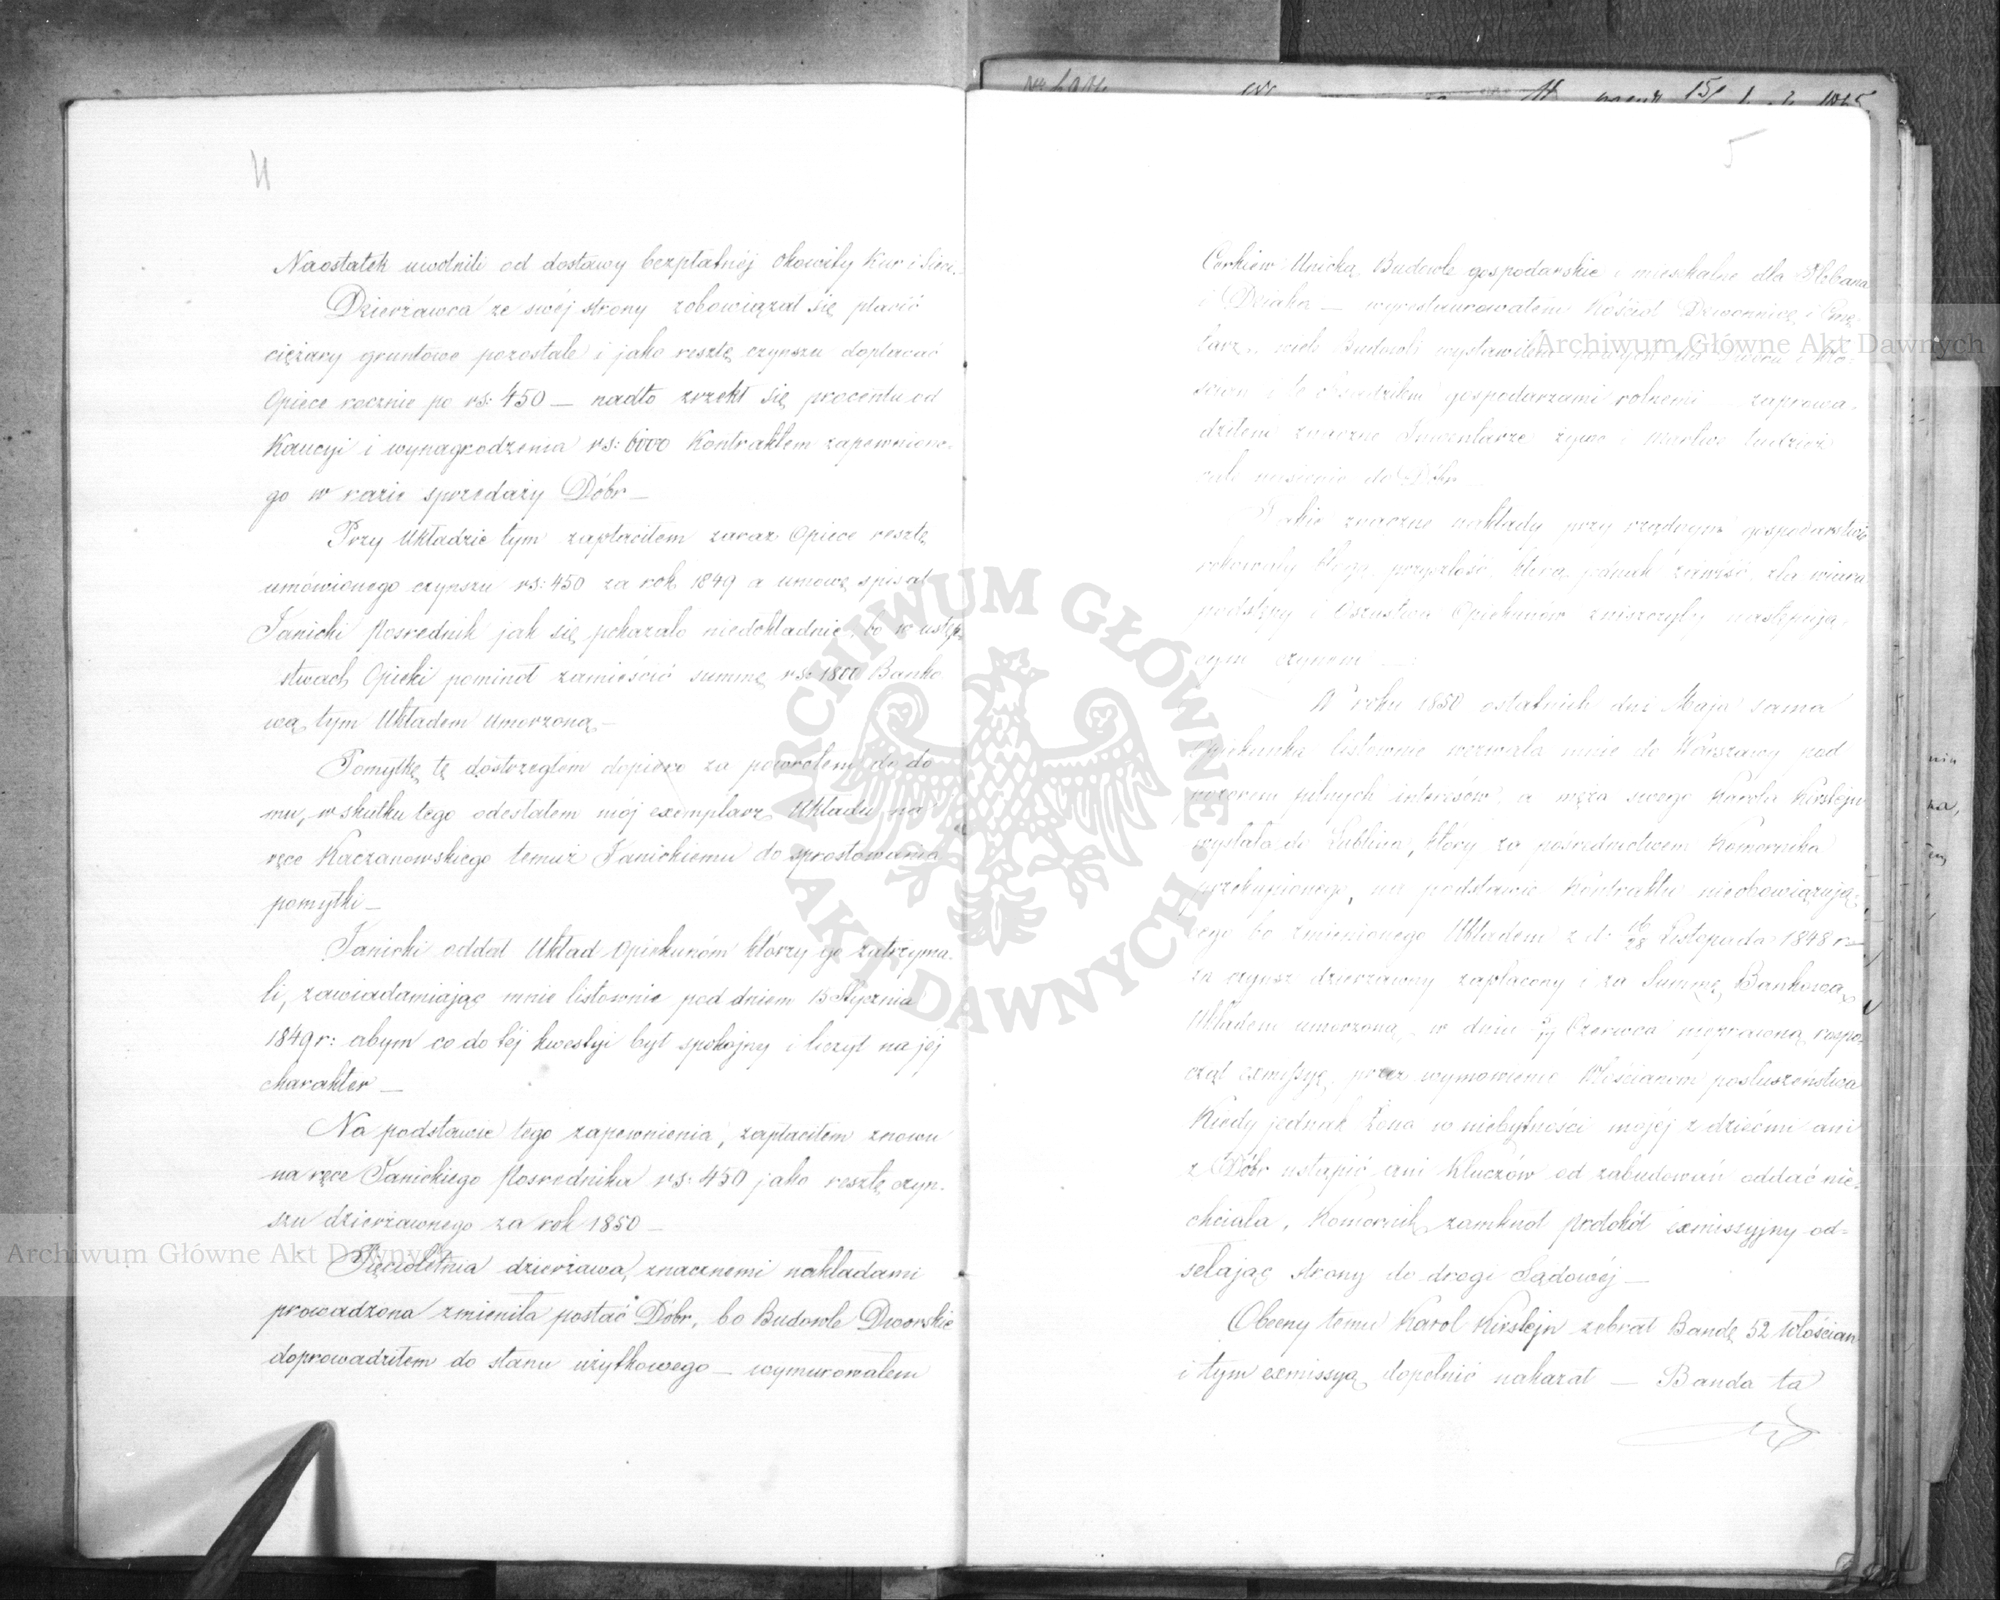 4
Naostatek uwolnili od dostawy bezpłatnéj okowity Kur i Sieci.
Dzierżawca ze swéj strony zobowiązał się płacić
ciężary gruntowe pozostałe i jako resztę czynszu dopłacać
Opiece rocznie po rs: 450 — nadto zrzekł się procentu od
Kaucyi i wynagrodzenia rs: 6000 Kontraktem zapewnione-
go w razie sprzedaży Dóbr —
Przy Układzie tym zapłaciłem zaraz Opiece resztę
umówionego czynszu rs: 450 za rok 1849 a umowę spisał
Janicki Pośrednik jak się pokazało niedokładnie, bo w ustęp-
stwach Opieki pominął zamieścić summę rs: 1800 Banko
wą, tym Układem umorzoną —
Pomyłkę tę dostrzegłem dopiero za powrotem do do
mu, w skutku tego odesłałem mój exemplarz Układu na
ręce Kaczanowskiego temuż Janickiemu do sprostowania
pomyłki —
Janicki oddał Układ Opiekunom którzy go zatrzyma-
li, zawiadamiając mnie listownie pod dniem 15 Stycznia
1849 r: abym co do téj kwestyi był spokojny i liczył na jéj
charakter —
Na podstawie tego zapewnienia, zapłaciłem znowu
na ręce Janickiego Pośrednika rs: 450 jako resztę czyn-
szu dzierżawnego za rok 1850 —
Pięcioletnia dzierżawa, znacznemi nakładami
prowadzona zmieniła postać Dóbr, bo Budowle Dworskie
doprowadziłem do stanu użytkowego — wymurowałem
5
Cerkiew Unicką, Budowle gospodarskie i mieszkalne dla Plebana
i Dziaka — wyrestaurowałem Kościół Dzwonnicę i Cmę-
tarz, wiele budowli wystawiłem
gospodarzami rolnemi zaprowa-
dziłem znaczne Inwentarze żywe i martwe tudzież
do Dóbr —
Takie znaczne nakłady przy rządnym gospodarstwie
rokowały błogą przyszłość, którą jednak zawiść, zła wiara
podstępy i Oszustwa Opiekunów zniszczyły następują-
cym czynem —:
W roku 1850 ostatnich dni Maja sama
Opiekunka listownie wezwała mnie do Warszawy pod
pozorem pilnych interesów, a męża swego Karola Kirstejn
wysłała do Lublina, który za pośrednictwem Komornika
przekupionego, na podstawie Kontraktu nieobowiązują-
cego bo zmienionego Układem z d: 16/28 Listopada 1848 r:
za czynsz dzierżawny zapłacony i za Summę Bankową
Układem umorzoną, w dniu Czerwca nieprawną rozpo-
czął exmissyę, przez wymówienie Włościanom posłuszeństwa
Kiedy jednak Żona w niebytności mojéj z dziećmi ani
z Dóbr ustąpić ani Kluczów od zabudowań oddać nie-
chciała, Komornik zamknął protokół exmissyjny od-
sełając strony do drogi Sądowéj —
Obecny temu Karol Kirstejn zebrał Bandę 52 włościan
i tym exmissyą dopełnić nakazał — Banda ta
Archiwum Główne Akt Dawnych
Archiwum Główne Akt Dawnych
ARCHIWUM GŁÓWNE
AKT DAWNYCH